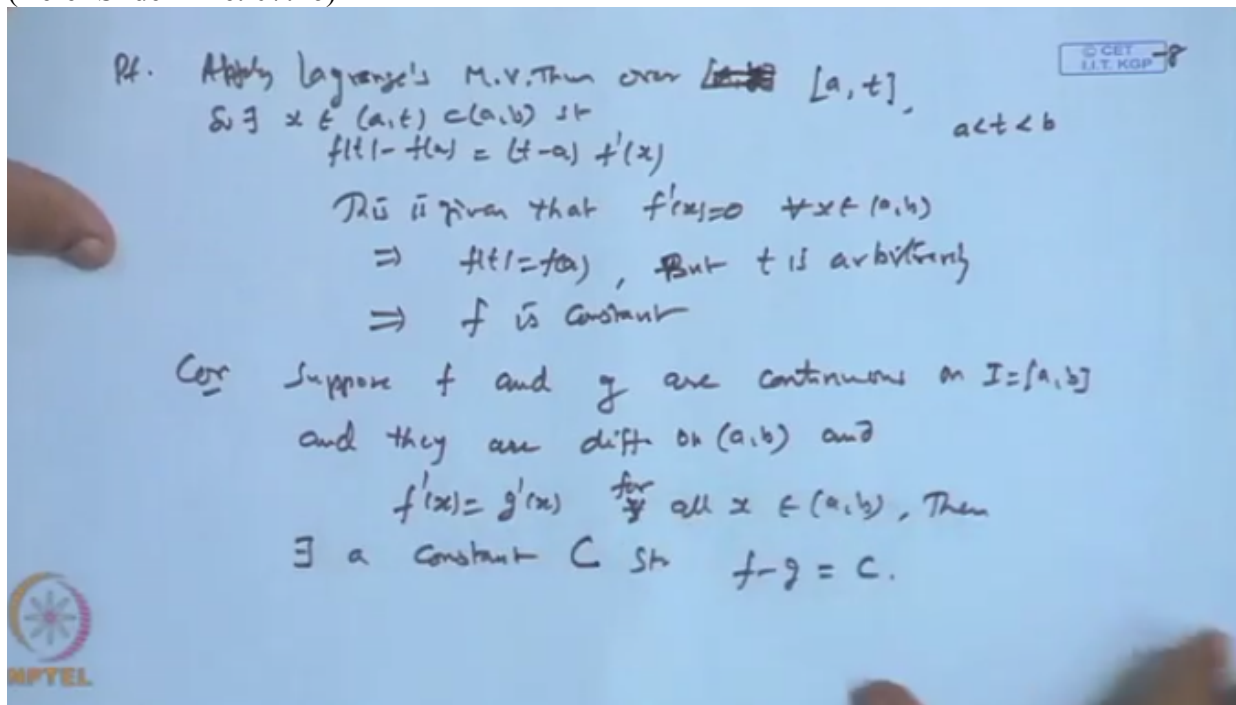 Pf. Apply Lagrange's M.V.Thm over [a, t],
a<t<b
So ∃ x ∈ (a,t) ⊂ (a,b) st
f(t) - f(a) = (t-a) f'(x)
It is given that f'(x)=0 ∀ x ∈ (a,b)
⇒ f(t)=f(a), But t is arbitrary
⇒ f is constant
Cor Suppose f and g are continuous on I=[a,b]
and they are diff on (a,b) and
f'(x)= g'(x) for all x ∈ (a,b), Then
∃ a constant C st f-g = C.
© CET
I.I.T. KGP
NPTEL